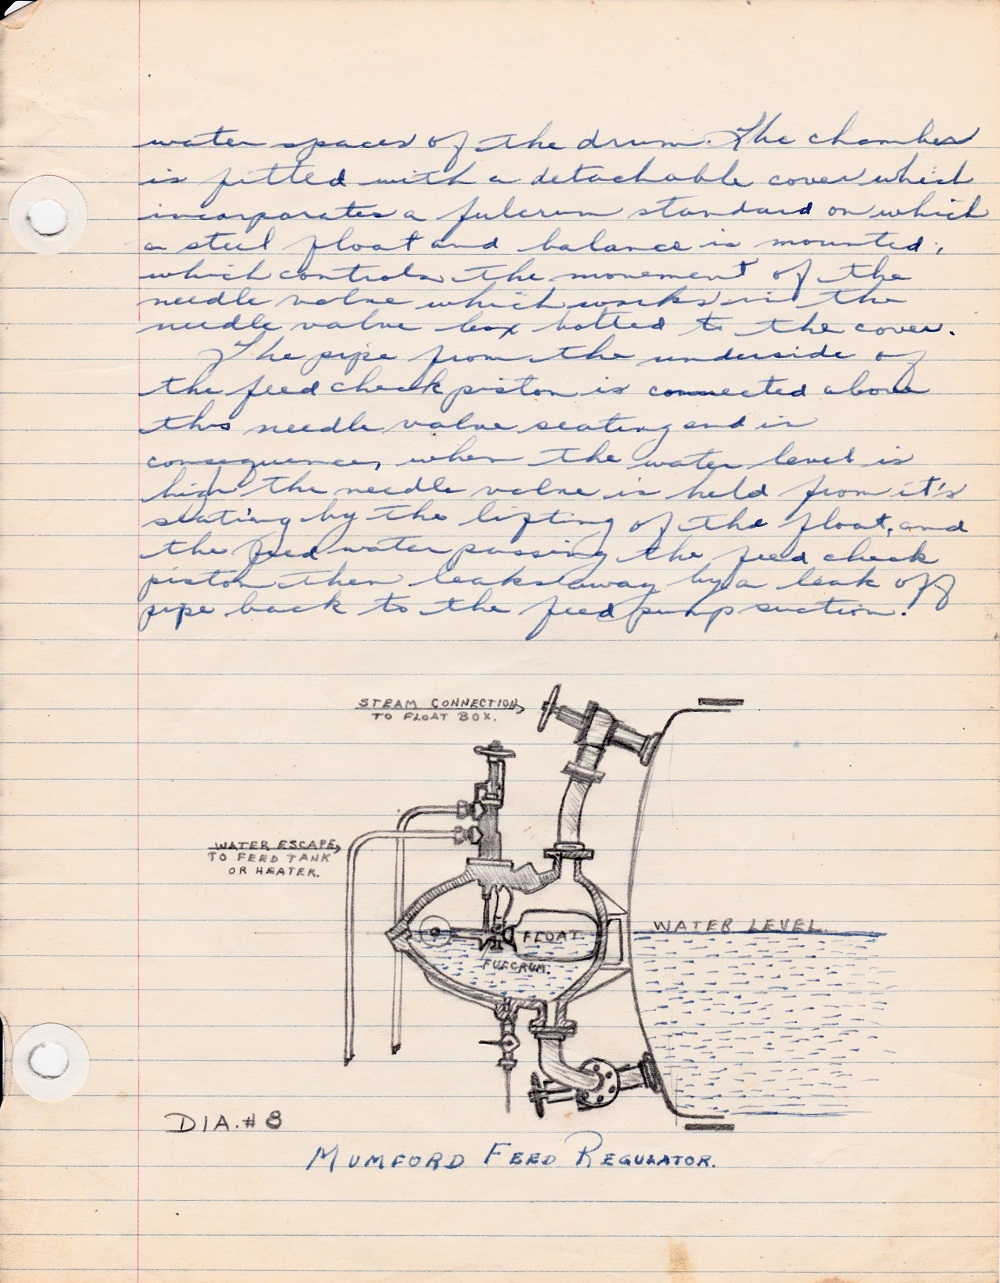 water spaces of the drum. The chamber
is fitted with a detachable cover which
incorporates a fulcrum standard on which
a steel float and balance is mounted,
which controls the movement of the
needle valve which works in the
needle valve box bolted to the cover.
The pipe from the underside of
the feed check piston is connected above
this needle valve seating and in
consequence, when the water level is
high the needle valve is held from it's
seating by the lifting of the float, and
the feed water passing the feed check
piston then leaks away by a leak off
pipe back to the feed pump suction.
STEAM CONNECTION
TO FLOAT BOX.
WATER ESCAPE
TO FEED TANK
OR HEATER.
WATER LEVEL.
FLOAT
FULCRUM.
DIA. # 8
MUMFORD FEED REGULATOR.